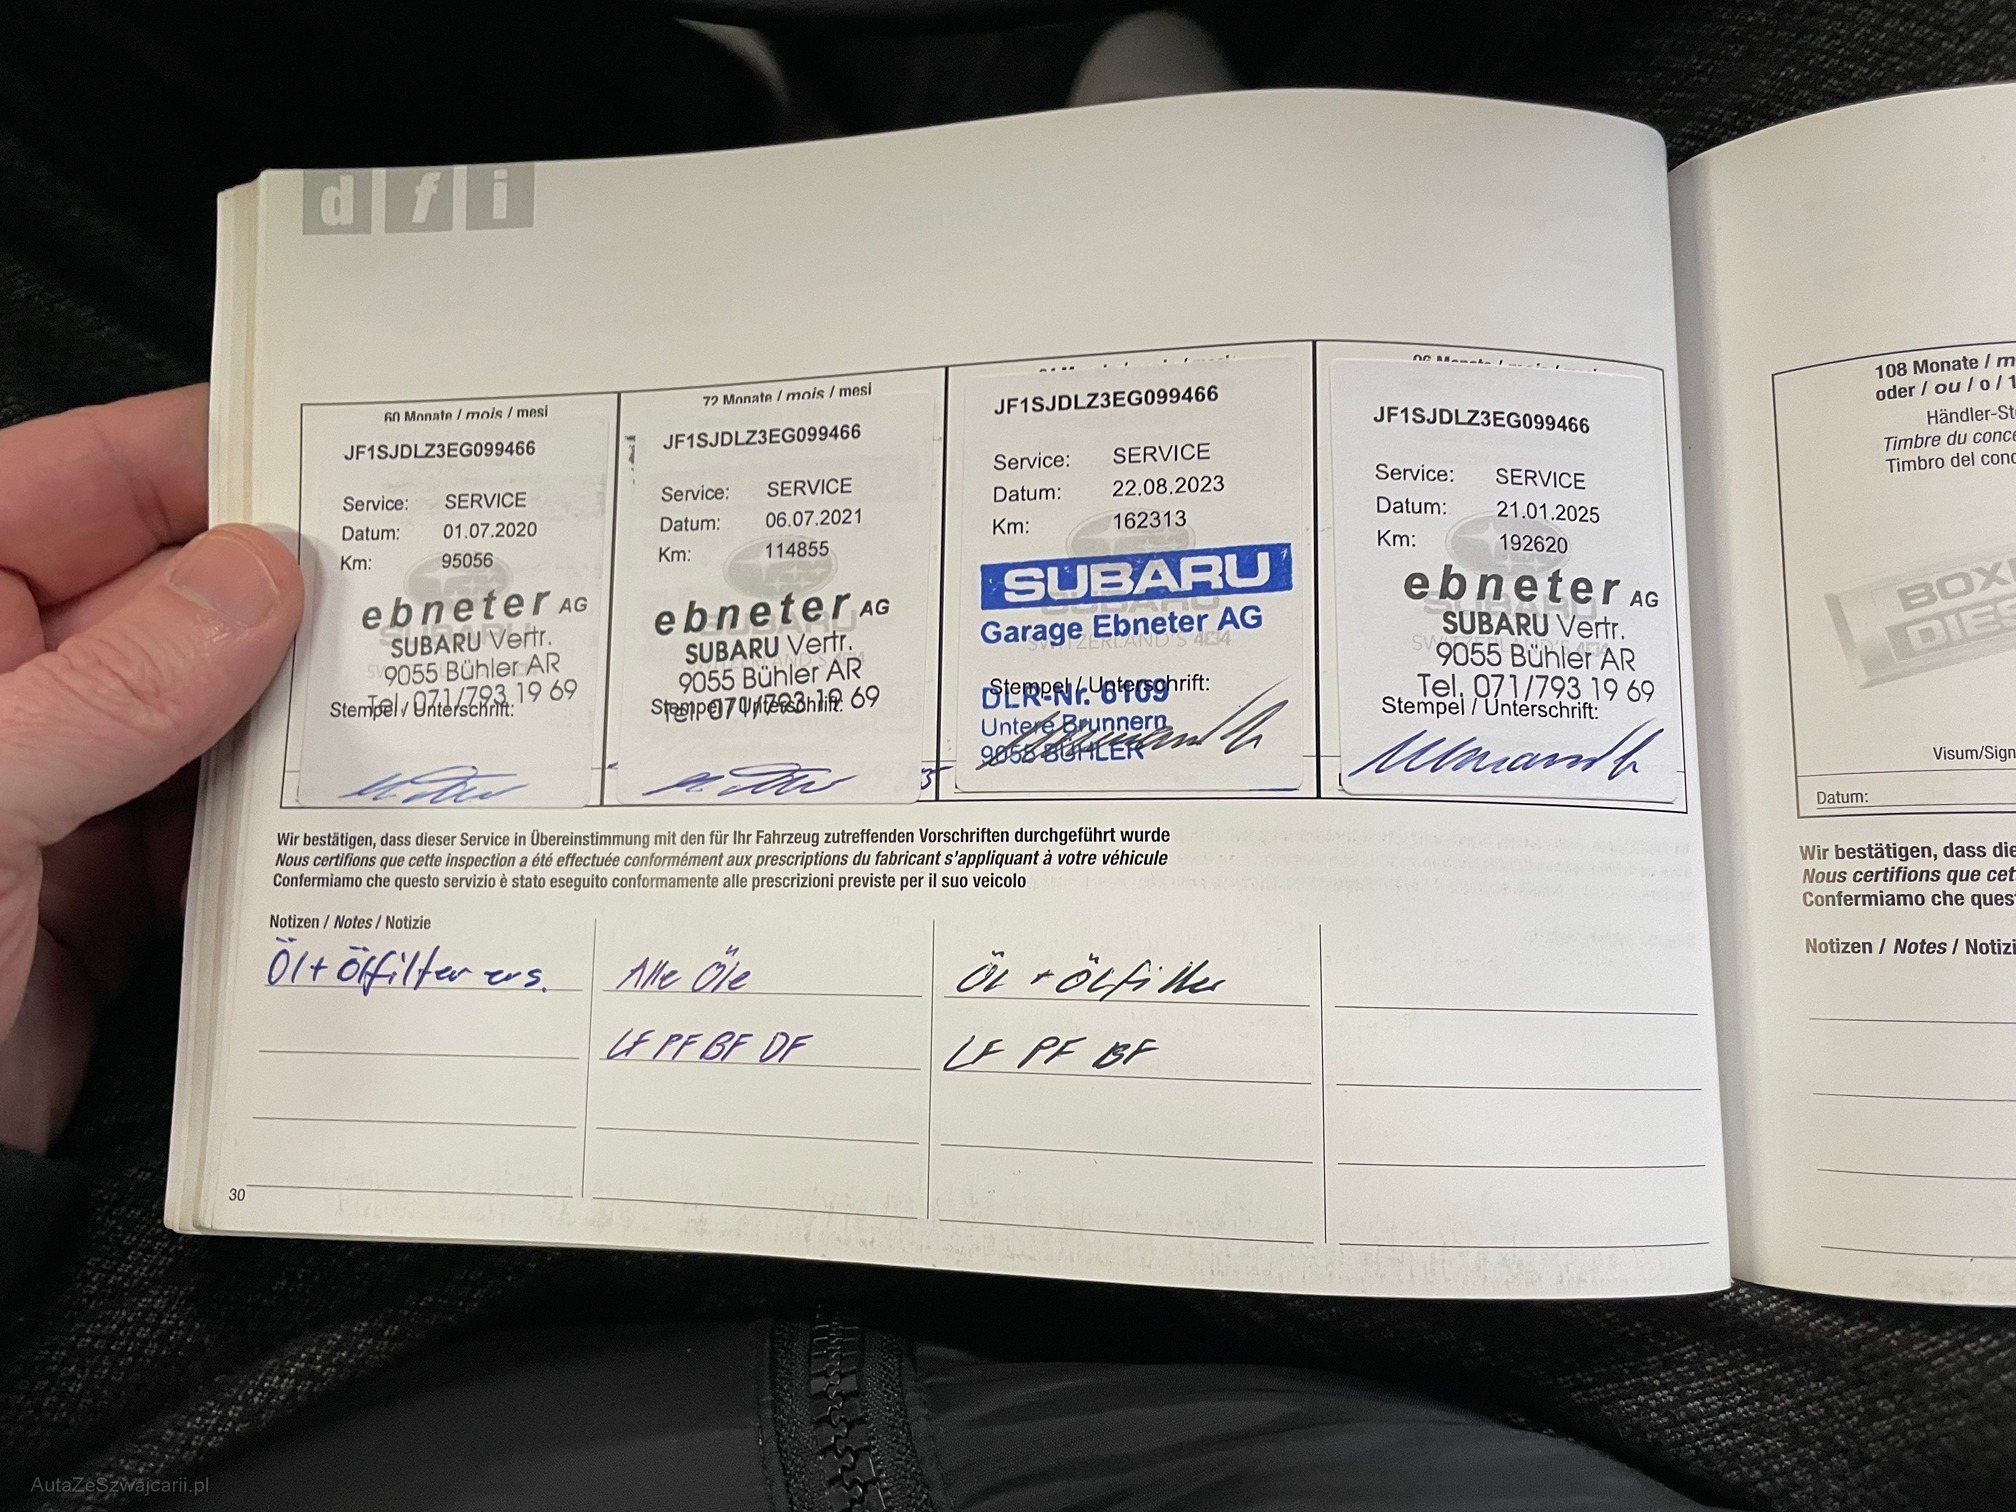 d f i
60 Monate / mois / mesi
JF1SJDLZ3EG099466
Service: SERVICE
Datum: 01.07.2020
Km: 95056
ebneter AG
SUBARU Vertr.
9055 Bühler AR
Tel. 071/793 19 69
Stempel / Unterschrift:
72 Monate / mois / mesi
JF1SJDLZ3EG099466
Service: SERVICE
Datum: 06.07.2021
Km: 114855
ebneter AG
SUBARU Vertr.
9055 Bühler AR
Tel. 071/793 19 69
Stempel / Unterschrift:
JF1SJDLZ3EG099466
Service: SERVICE
Datum: 22.08.2023
Km: 162313
SUBARU
Garage Ebneter AG
SWITZERLAND'S 4x4
Stempel / Unterschrift:
DLR-Nr. 6109
Untere Brunnern
9055 BÜHLER
96 Monate / mois / mesi
JF1SJDLZ3EG099466
Service: SERVICE
Datum: 21.01.2025
Km: 192620
ebneter AG
SUBARU Vertr.
9055 Bühler AR
Tel. 071/793 19 69
Stempel / Unterschrift:
Wir bestätigen, dass dieser Service in Übereinstimmung mit den für Ihr Fahrzeug zutreffenden Vorschriften durchgeführt wurde
Nous certifions que cette inspection a été effectuée conformément aux prescriptions du fabricant s'appliquant à votre véhicule
Confermiamo che questo servizio è stato eseguito conformamente alle prescrizioni previste per il suo veicolo
Notizen / Notes / Notizie
Öl + Ölfilter ers.
Alle Öle
LF PF BF DF
Öl + Ölfilter
LF PF BF
30
108 Monate / m
oder / ou / o / 1
Händler-St
Timbre du conce
Timbro del conc
BOX
DIES
Visum/Sign
Datum:
Wir bestätigen, dass die
Nous certifions que cet
Confermiamo che ques
Notizen / Notes / Notizi
AutaZeSzwajcarii.pl